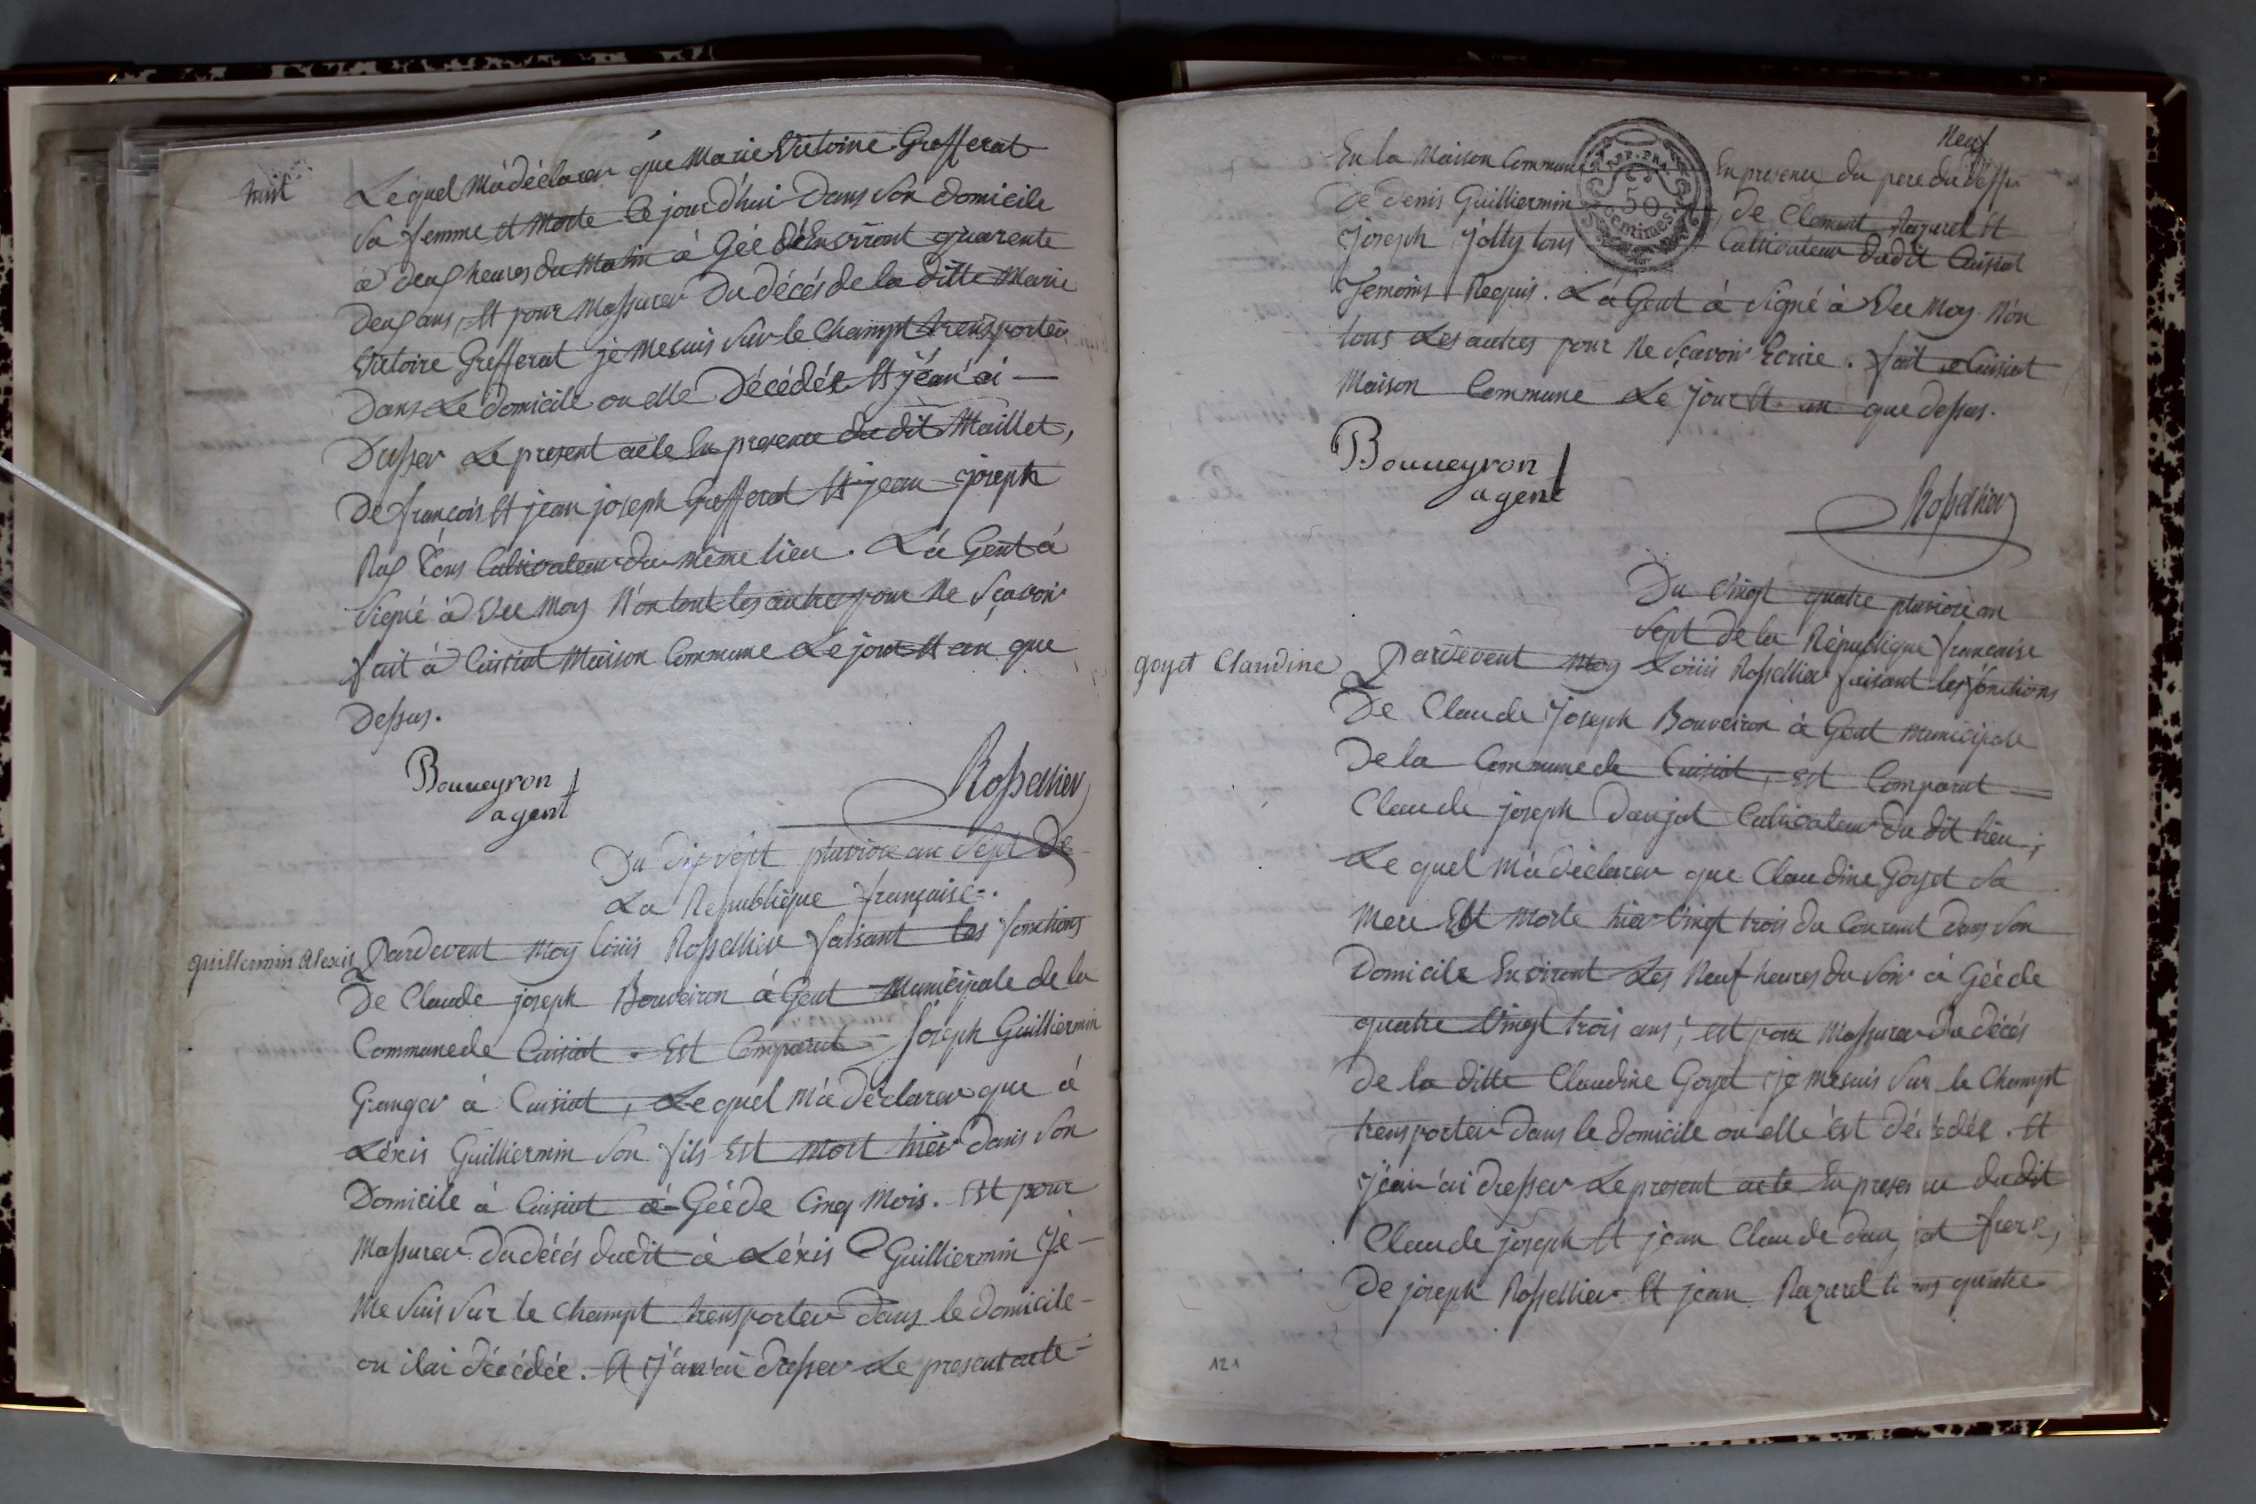 huit
Lequel m'a déclarer que Marie Victoire Grefferat
sa femme et morte ce jourd'hui dans son domicile
à deux heures du matin à Gée d'Environt quarente
deux ans, Et pour m'assurer du décés de la ditte Marie
Victoire Grefferat je me suis sur le Champt transporter
dans Le domicile ou elle Décédée Et j'ean'ai
Dresser Le present acte En presence du dit Maillet,
De françois Et jean joseph Grefferat Et jean joseph
Rax Tous Cultivateur du même lieu. L'a Gent à
signé à Vec Moy N'on tout les autres pour Ne sçavoir
fait à Cuisiat Maison Commune Le jour Et an que
Dessus.
Bouueyron
agent
Rossellier
Du dix sept pluviose an Sept De
La Republique française.
guillermin alexis Pardevent Moy Loüis Rossellier faisant les fonctions
De Claude joseph Bouveiron à Gent Municipale de la
Commune de Cuisiat. Est Comparut Joseph Guilliermin
Granger à Cuisiat, Le quel M'a déclarer que à
Léxis Guilliermin son fils Est mort hier dans son
Domicile à Cuisiat à Gée de Cinq Mois. Est pour
Massurer du décés dudit à Léxis Guilliermin Je
Me suis sur le Champt transporter dans le domicile
ou il ai décédée. Et j'ean'ai dresser Le present acte
Neuf
En la Maison Commune En presence du pere du deffu
De Denis Guilliermin De Clement Razurel Et
Joseph Jolly tous Cultivateur dudit Cuisiat
Temoins Requis. L'a Gent à signé à Vec Moy N'on
tous Les autres pour Ne sçavoir Ecrire. fait a Cuisiat
Maison Commune Le jour Et an que dessus.
50
centimes
Bouueyron
agent
Rossellier
Du Vingt quatre pluviose an
sept de la République française
goyet Claudine Pardevent Moy Loüis Rossellier faisant les fonctions
De Claude Joseph Bouveiron à Gent Municipale
De la Commune de Cuisiat, est Comparut
Claude joseph Daujat Cultivateur du dit lieu,
Le quel M'a déclarer que Claudine Goyet sa
Mere Est Morte hier Vingt trois du Courent dans son
Domicile Environt Les Neuf heures du soir à Gée de
quatre Vingt trois ans, est pour Massurer du décés
De la ditte Claudine Goyet je me suis sur le Champt
trensporter dans le domicile ou elle est décédée. Et
J'ean'ai dresser Le present acte En presence dudit
Claude joseph Et jean Claude daujat frere,
De joseph Rossellier Et jean Razurel tous quatre
121